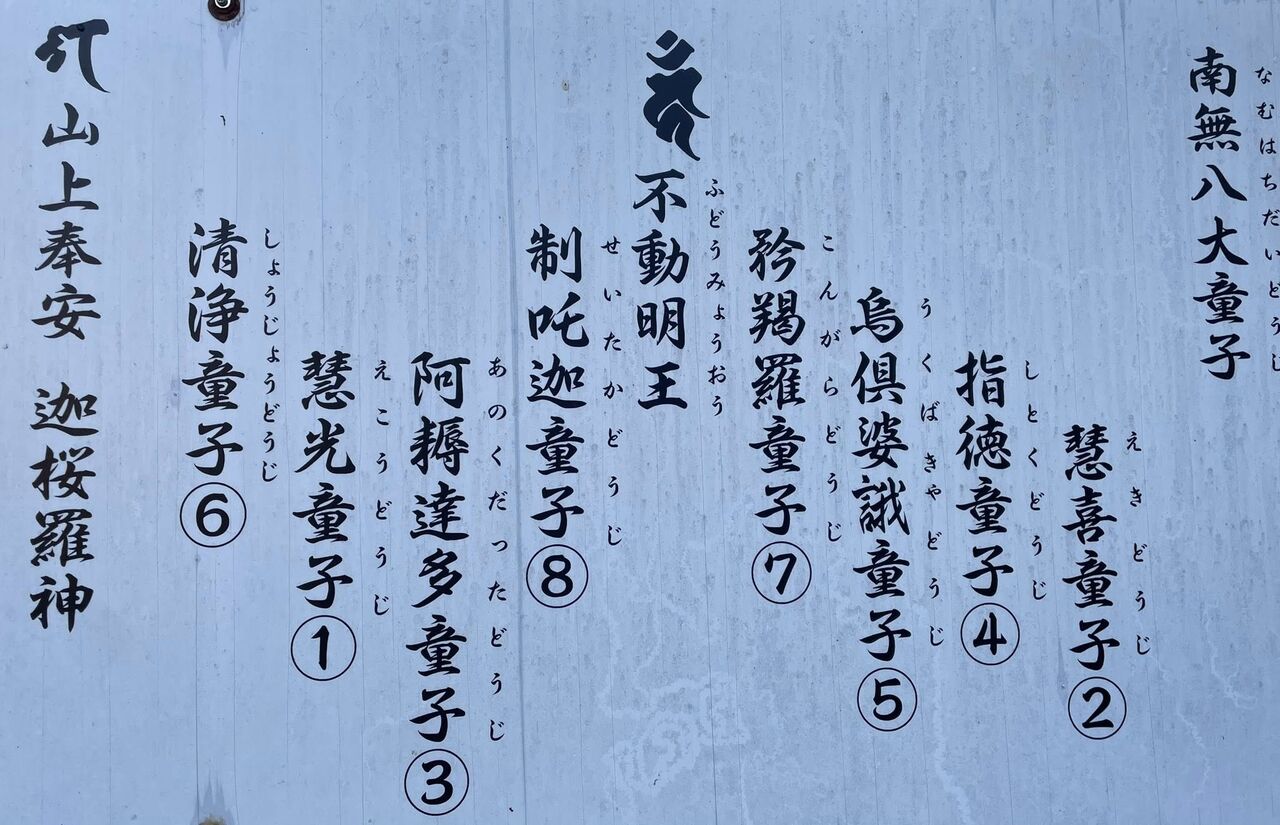 南無八大童子
なむはちだいどうじ
慧喜童子②
えきどうじ
指徳童子④
しとくどうじ
烏倶婆誐童子⑤
うくばきゃどうじ
矜羯羅童子⑦
こんがらどうじ
不動明王
ふどうみょうおう
制吒迦童子⑧
せいたかどうじ
阿耨達多童子③
あのくだったどうじ
慧光童子①
えこうどうじ
清浄童子⑥
しょうじょうどうじ
山上奉安 迦桜羅神